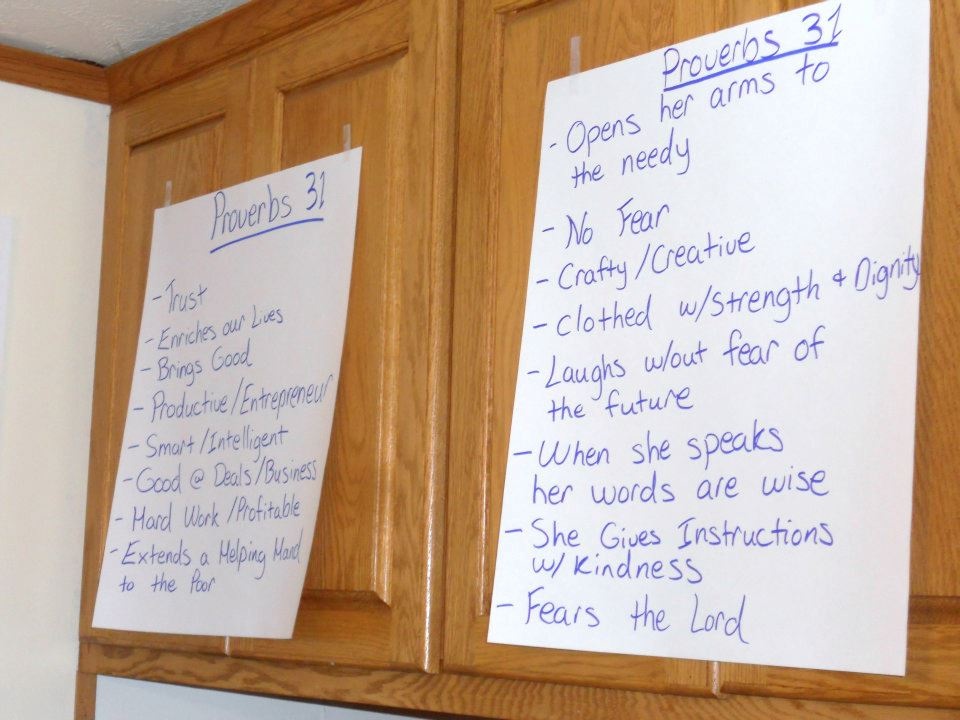 Proverbs 31
- Trust
- Enriches our Lives
- Brings Good
- Productive/Entrepreneur
- Smart/Intelligent
- Good @ Deals/Business
- Hard Work/Profitable
- Extends a Helping Hand
to the Poor
Proverbs 31
- Opens her arms to
the needy
- No Fear
- Crafty/Creative
- Clothed w/Strength & Dignity
- Laughs w/out fear of
the future
- When she speaks
her words are wise
- She Gives Instructions
w/ Kindness
- Fears the Lord